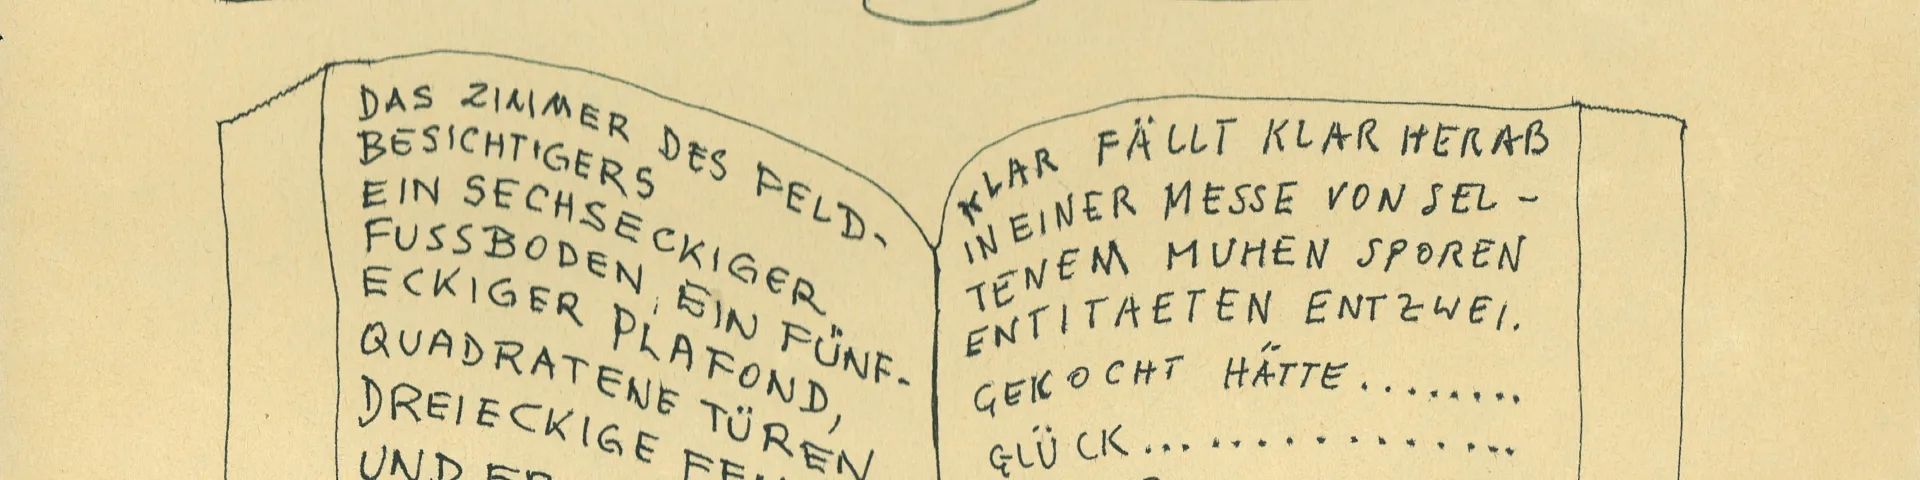 DAS ZIMMER DES FELD-
BESICHTIGERS
EIN SECHSECKIGER
FUSSBODEN, EIN FÜNF-
ECKIGER PLAFOND,
QUADRATENE TÜREN
DREIECKIGE
UND
KLAR FÄLLT KLAR HERAB
IN EINER MESSE VON SEL-
TENEM MUHEN SPOREN
ENTITAETEN ENTZWEI.
GEKOCHT HÄTTE........
GLÜCK................